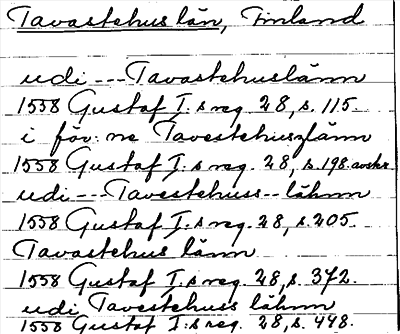 Tavastehus län, Finland
udi --- Tavastehuslänn
1558 Gustaf I.s reg. 28, s. 115.
i för:ne Tavestehuszlänn
1558 Gustaf I.s reg. 28, s. 198. avskr.
udi --- Tavestehuss -- lähnn
1558 Gustaf I.s reg. 28, s. 205.
Tavastehus länn
1558 Gustaf I.s reg. 28, s. 372.
udi Tavestehuss lähnn
1558 Gustaf I.s reg. 28, s. 448.